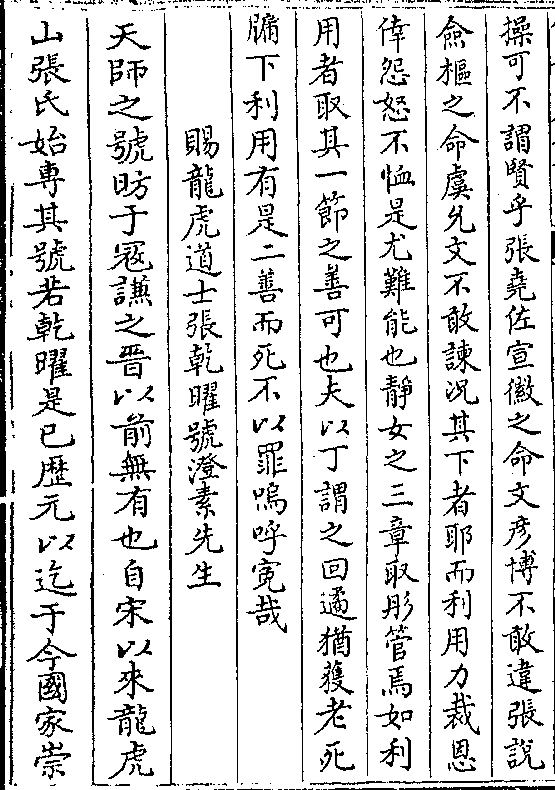 操可不謂賢乎張堯佐宣徽之命文彥博不敢違張說
僉樞之命虞允文不敢諫況其下者耶而利用力裁恩
倖怨怒不恤是尤難能也靜女之三章取彤管焉如利
用者取其一節之善可也夫以丁謂之回遹猶獲老死
牖下利用有是二善而死不以罪嗚呼寃哉
賜龍虎道士張乾曜號澄素先生
天師之號昉于寇謙之晉以前無有也自宋以來龍虎
山張氏始專其號若乾曜是已歷元以迄于今國家崇